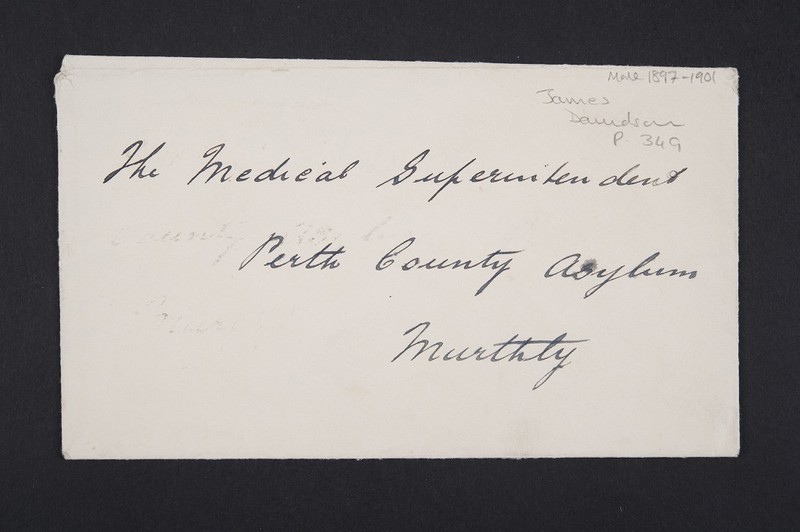 Male 1897-1901
James
Davidson
P 349
The Medical Superintendent
Perth County Asylum
Murthly